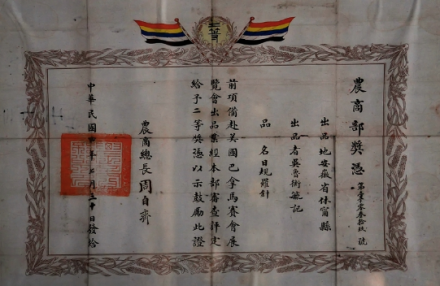 二等
農商部獎憑
第壹零叁拾玖號
出品地安徽省休甯縣
出品者吳魯衡毓記
品名日規羅針
前項備赴美國巴拿馬賽會展
覽會出品業經本部審查評定
給予二等獎憑以示鼓勵此證
農商總長周自齊
中華民國四年月日發給